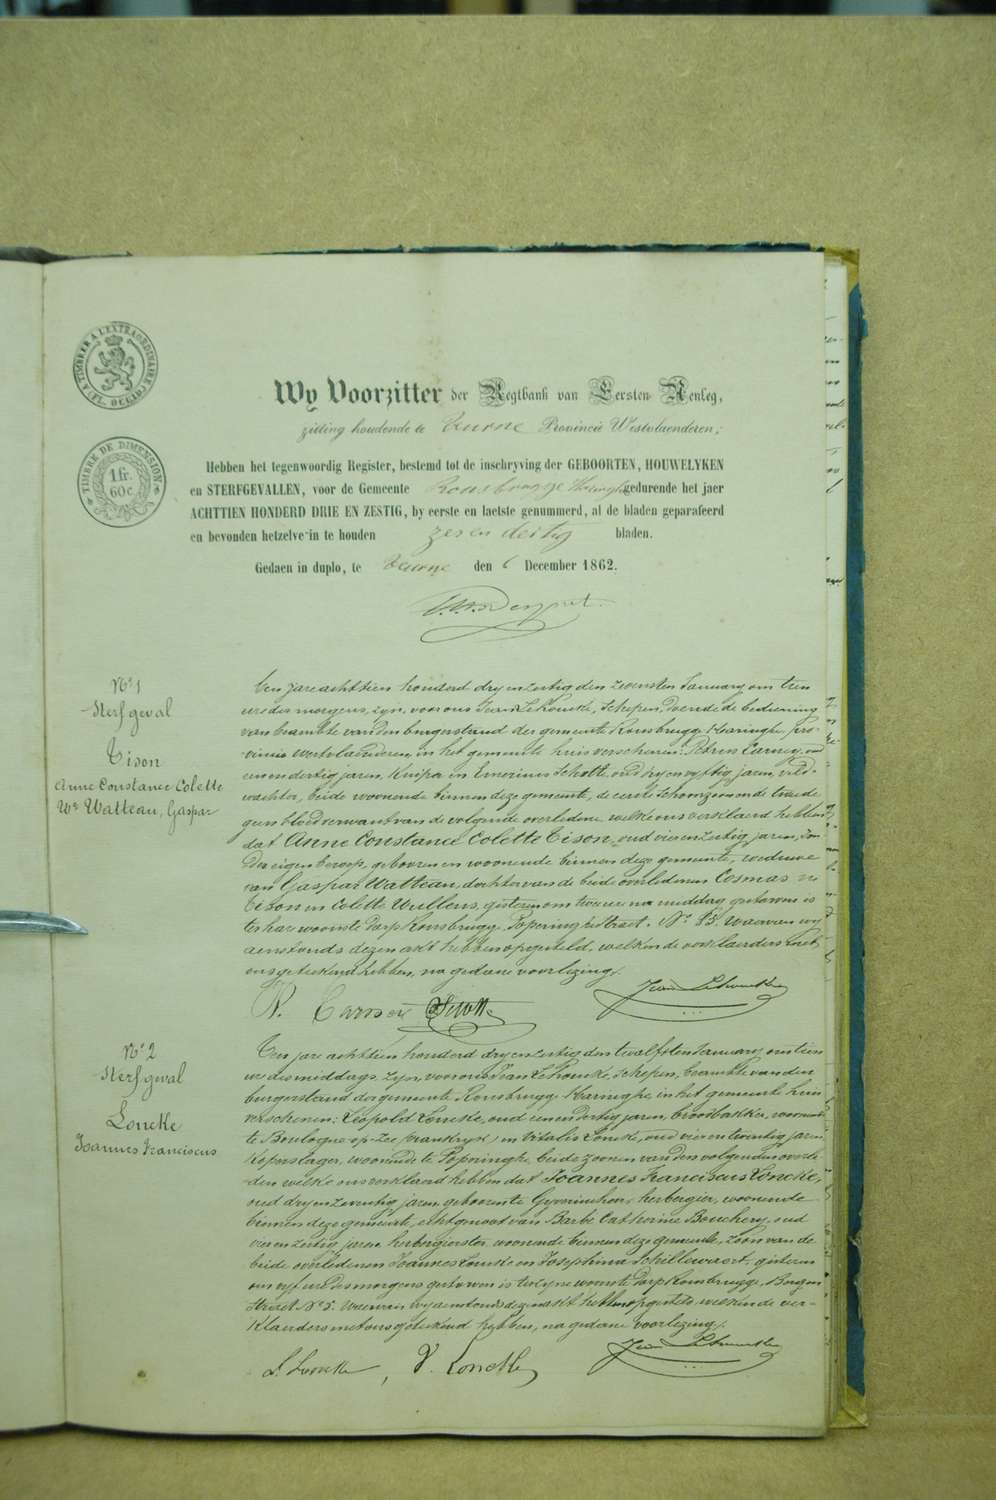 TIMBRE A L'EXTRAORDINAIRE
FL. OCCID.
TIMBRE DE DIMENSION
1 fr.
60 c.
Wy Voorzitter der Regtbank van Eersten Aenleg,
zitting houdende te Veurne Provincie Westvlaenderen;
Hebben het tegenwoordig Register, bestemd tot de inschryving der GEBOORTEN, HOUWELYKEN
en STERFGEVALLEN, voor de Gemeente Rousbrugge Haringhe gedurende het jaer
ACHTTIEN HONDERD DRIE EN ZESTIG, by eerste en laetste genummerd, al de bladen geparafeerd
en bevonden hetzelve in te houden zes en dertig bladen.
Gedaen in duplo, te Veurne den 6 December 1862.
N° 1
Sterfgeval
Tison
Anne Constance Colette
We Watteau, Gaspar
Ten jare achttien honderd dry en zestig den zevensten January om tien
ure des morgens, zyn voor ons Jean Lehoucke, schepen, doende de bediening
van beambte van den burgerstand der gemeente Rousbrugge Haringhe, pro-
vincie Westvlaenderen, in het gemeente huis verschenen: Petrus Carney, oud
een en dertig jaren, kuiper en Emerinus Schotte, oud dry en vyftig jaren, veld-
wachter, beide woonende binnen deze gemeente, de eerste schoonzoon en de tweede
geen bloedverwant van de volgende overledene welke ons verklaerd hebben
dat Anne Constance Colette Tison, oud vier en zestig jaren, zon-
der eigen beroep, geboren en woonende binnen deze gemeente, weduwe
van Gaspar Watteau, dochter van de beide overledenen Cosmas
Tison en Colette Wullens, gisteren om twee ure na middag gestorven is
t'haer woonste Dorp Rousbrugge, Poperinghestraet, N° 15. Waervan wy
aenstonds dezen akt hebben opgesteld, welken de verklaerders met
ons geteekend hebben, na gedane voorlezing.
P. Carney Schotte Jean Lehoucke
N° 2
Sterfgeval
Loncke
Joannes Franciscus
Ten jare achttien honderd dry en zestig den twalfsten January om tien
ure des middags, zyn voor ons Jean Lehoucke, schepen, beambte van den
burgerstand der gemeente Rousbrugge Haringhe, in het gemeente huis
verschenen: Leopold Loncke, oud een en dertig jaren, broodbakker, woonende
te Boulogne op Zee (frankryk) en Vitalis Loncke, oud vier en twentig jaren
koperslager, woonende te Poperinghe, beide zoonen van den volgenden overle-
den welke ons verklaerd hebben dat Joannes Franciscus Loncke,
oud dry en zeventig jaren, geboren te Gyverinchove, herbergier, woonende
binnen deze gemeente, echtgenoot van Barbe Catherine Bouchery, oud
vier en zestig jaren, herbergierster, woonende binnen deze gemeente, zoon van de
beide overledenen Joannes Loncke en Josephina Schillewaert, gisteren
om vyf ure des morgens gestorven is te zyne woonste Dorp Rousbrugge, Bergen
Straet N° 5. Waervan wy aenstonds dezen akt hebben opgesteld, welken de ver-
klaerders met ons geteekend hebben, na gedane voorlezing.
L. Loncke, V. Loncke Jean Lehoucke